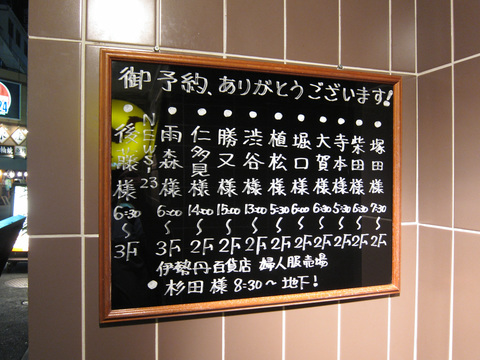 御予約、ありがとうございます!
塚田様 7:30〜2F
柴田様 6:30〜2F
寺本様 5:30〜2F
大賀様 6:30〜2F
堀口様 6:00〜2F
植松様 5:30〜2F
渋谷様 13:00〜2F
勝又様 15:00〜2F
仁多見様 14:00〜2F
雨森様 6:00〜3F
NEWS・23
後藤様 6:30〜3F
伊勢丹百貨店 婦人服売場
杉田様 8:30〜地下!
24